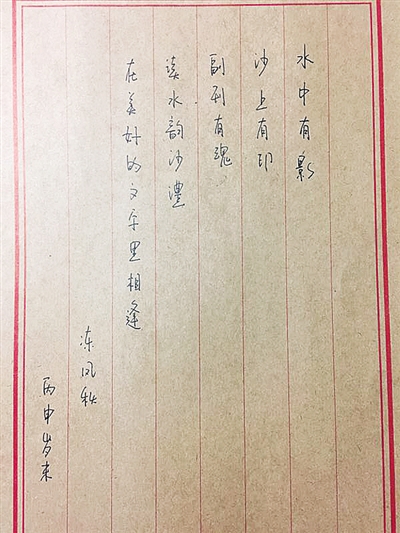 水中有影
沙上有印
副刊有魂
读水韵沙澧
在美好的文字里相逢
冻凤秋
丙申岁末